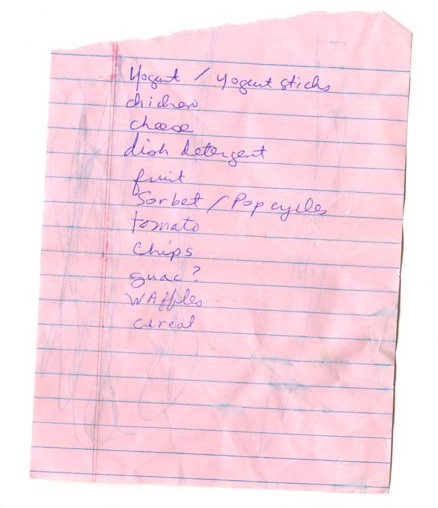 Yogurt / yogurt sticks
chicken
cheese
dish detergent
fruit
Sorbet / Popcycles
tomato
Chips
guac?
WAffles
cereal